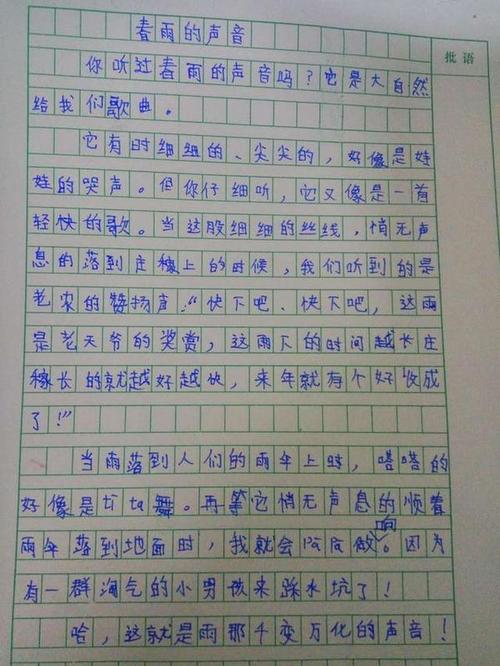 春雨的声音
批语
你听过春雨的声音吗?它是大自然
给我们歌曲。
它有时细细的、尖尖的,好像是娃
娃的哭声。但你仔细听,它又像是一首
轻快的歌。当这股细细的丝线,悄无声
息的落到庄稼上的时候,我们听到的是
老农的赞扬声:“快下吧、快下吧,这雨
是老天爷的奖赏,这雨下的时间越长庄
稼长的就越好越快,来年就有个好收成
了!”
当雨落到人们的雨伞上时,嗒嗒的
好像是ti ta舞。再等它悄无声息的顺着
雨伞落到地面时,我就会pa pa做响。因为
有一群淘气的小男孩来踩水坑了!
哈,这就是雨那千变万化的声音!